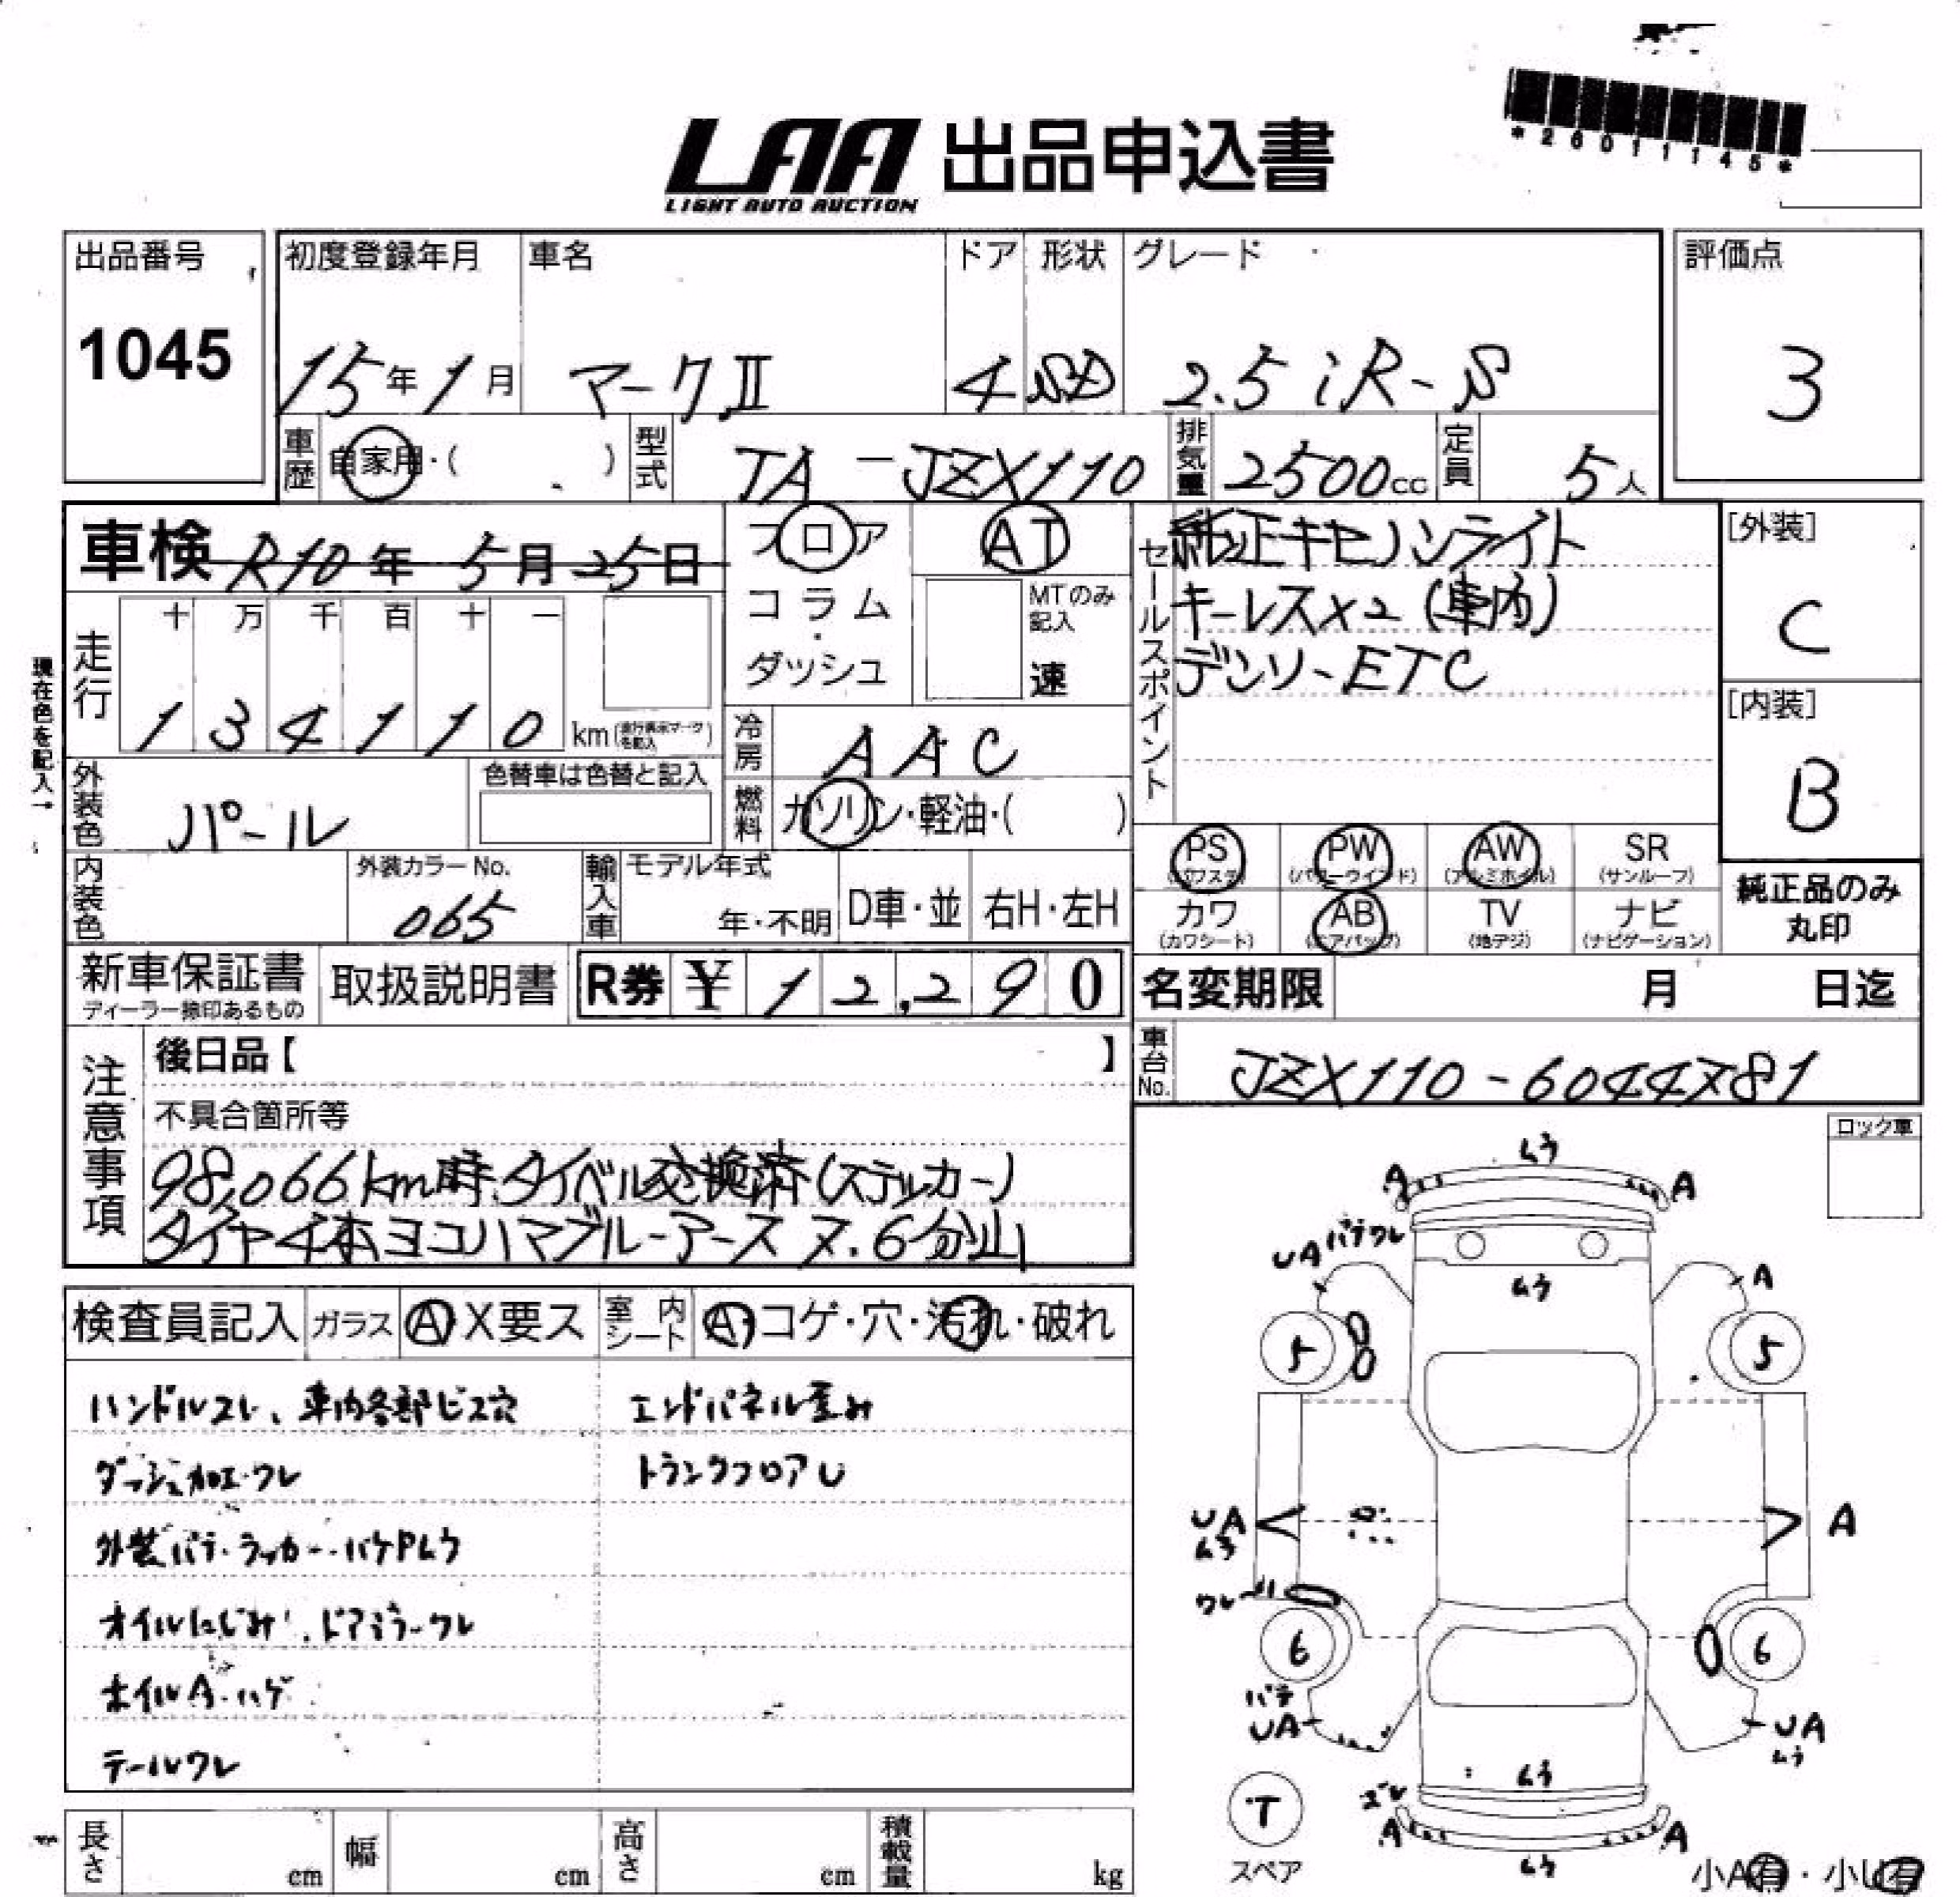 *26011145*
LAA 出品申込書
LIGHT AUTO AUCTION
出品番号
1045
初度登録年月
15年1月
車名
マークⅡ
ドア
4
形状
SD
グレード
2.5 iR-S
評価点
3
車歴
自家用・( )
型式
TA-JZX110
排気量
2500cc
定員
5人
車検 R10年 5月 25日
フロア
コラム
・
ダッシュ
AT
MTのみ
記入
速
セールスポイント
純正キセノンライト
キーレス×2 (車内)
デンソーETC
[外装]
C
[内装]
B
現在色を記入→
走行
十 万 千 百 十 一
1 3 4 1 1 0 km(走行表示マークを記入)
冷房
AAC
外装色
パール
色替車は色替と記入
燃料
ガソリン・軽油・( )
内装色
外装カラーNo.
065
輸入車
モデル年式
年・不明
D車・並
右H・左H
PS
(パワステ)
PW
(パワーウインド)
AW
(アルミホイル)
SR
(サンルーフ)
カワ
(カワシート)
AB
(エアバッグ)
TV
(地デジ)
ナビ
(ナビゲーション)
純正品のみ
丸印
新車保証書
ディーラー捺印あるもの
取扱説明書
R券 ¥ 12,290
名変期限 月 日迄
車台No.
JZX110-6044781
注意事項
後日品【 】
不具合箇所等
98,066km時タイベル交換済(ステッカー)
タイヤ4本ヨコハマブルーアース 7.6分山
検査員記入
ガラス
A X要ス
室内シート
A・コゲ・穴・汚れ・破れ
ハンドルスレ、車内各部ビス穴
エンドパネル歪み
ダッシュ加工・ワレ
トランクフロアU
外装パテ・ラッカー・ハゲPムラ
オイルにじみ、ドアミラーワレ
ホイルA・ハゲ
テールワレ
長さ cm
幅 cm
高さ cm
積載量 kg
ロック車
ムラ
A
A
UA パテワレ
ムラ
A
5
5
UA
ムラ
A
ワレ
6
6
パテ
UA
UA
ムラ
ムラ
ズレ
A
A
ムラ
T
スペア
小A有・小U有